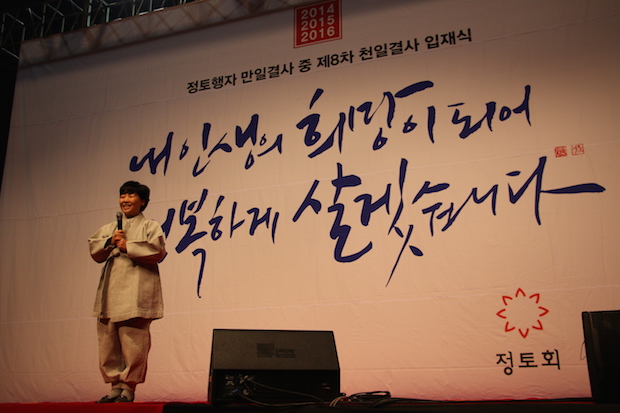 2014
2015
2016
정토행자 만일결사 중 제8차 천일결사 입재식
내 인생의 희망이 되어
복하게 살겠습니다
정토회